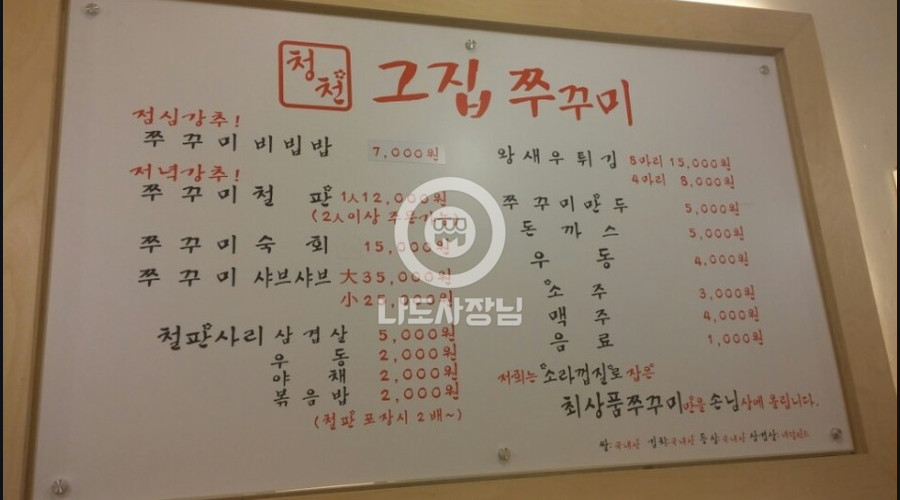 청천
그집 쭈꾸미
점심강추!
쭈꾸미비빔밥 7,000원
저녁강추!
쭈꾸미철판 1人12,000원
(2人이상 주문가능)
쭈꾸미숙회 15,000원
쭈꾸미 샤브샤브 大35,000원
小25,000원
철판사리 삼겹살 5,000원
우동 2,000원
야채 2,000원
볶음밥 2,000원
(철판 포장시 2배~)
왕새우튀김 8마리 15,000원
4마리 8,000원
쭈꾸미만두 5,000원
돈까스 5,000원
우동 4,000원
소주 3,000원
맥주 4,000원
음료 1,000원
저희는 소라껍질로 잡은
최상품쭈꾸미만을 손님상에 올립니다.
쌀:국내산 김치:국내산 등심:국내산 삼겹살:
나도사장님